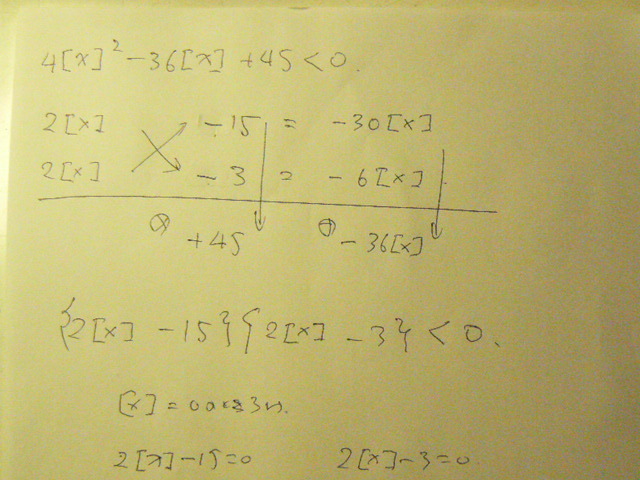 4[x]² -36[x] +45 < 0.
2[x] -15 = -30[x]
2[x] -3 = -6[x]
⊗ +45 ⊕ -36[x]
{2[x] -15}{2[x] -3} < 0.
[x] =
2[x]-15=0 2[x]-3=0